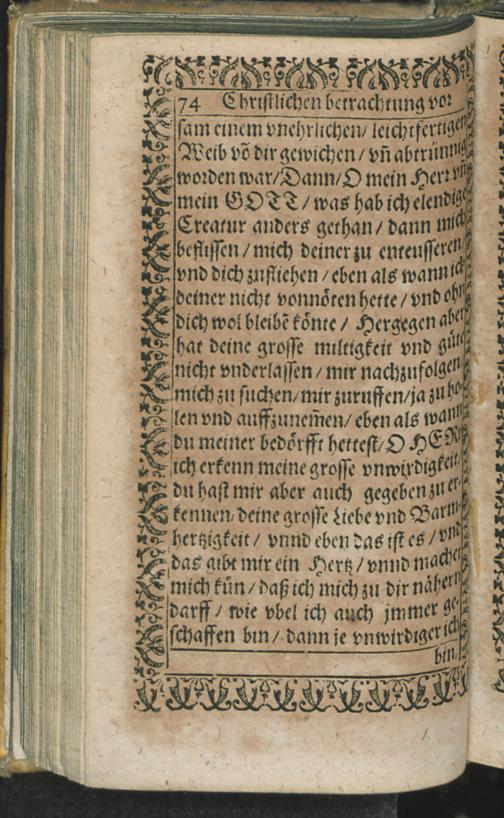 74 Christlichen betrachtung vor
sam einem vnehrlichen/ leichtfertigen
Weib võ dir gewichen/ vñ abtrünnig
worden war/Dann/O mein Herr vñ
mein GOTT/ was hab ich elendige
Creatur anders gethan/ dann mich
beflissen/ mich deiner zu enteusseren/
vnd dich zufliehen/ eben als wann ich
deiner nicht vonnöten hette/ vnd ohn
dich wol bleibẽ könte/ Hergegen aber
hat deine grosse miltigkeit vnd güte
nicht vnderlassen/ mir nachzufolgen/
mich zu suchen/mir zuruffen/ja zu ho-
len vnd auffzunem̃en/ eben als wann
du meiner bedörfft hettest/O HERR
ich erkenn meine grosse vnwirdigkeit/
du hast mir aber auch gegeben zu er-
kennen/deine grosse Liebe vnd Barm-
hertzigkeit/ vnnd eben das ist es/ vnd
das gibt mir ein Hertz/ vnnd machet
mich kün/ daß ich mich zu dir nähern
darff/ wie vbel ich auch jmmer ge-
schaffen bin/ dann je vnwirdiger ich
bin/